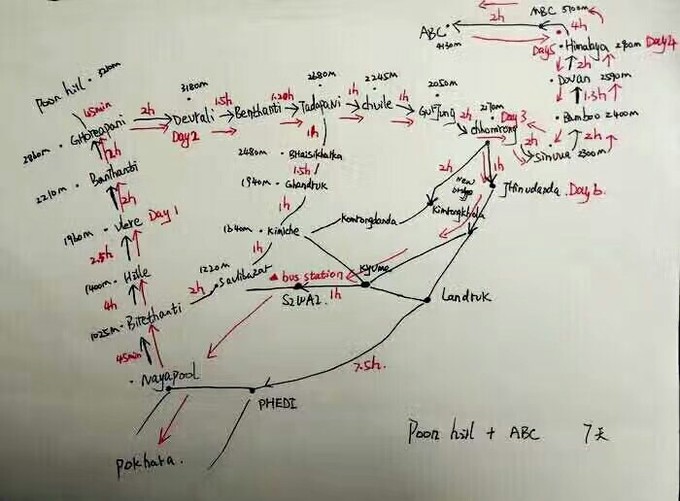 2h
MBC 5700m
ABC
4h
4130m
Day5
Himalaya 2900m Day4
2h
Poon hill 3200m
Dovan 2590m
1.3h
3180m
2680m
2245m
2050m
45min
2h
1.5h
1.20h
1h
1h
1h
2170m
Bamboo 2400m
Ghorepani
Deurali
Benthanti
Tadapani
chuile
GurJung
chhomrong
Day3
Day2
2h
2h
2860m
2h
1h
Sinuwa 2300m
2480m
Bhaisikharka
2210m
Banthanti
1.5h
2h
1h
2h
1940m
Ghandruk
Jhinudanda Day6
1960m
Ulere
Day1
1h
new bridge
Komrongdanda
Kimrongkhola
2.5h
1640m
Kimche
1400m
Hille
1h
1220m
Saulibazar
bus station
Kyume
4h
2h
SIWAI
1h
Landruk
1025m
Birethanti
45min
7.5h
Nayapool
PHEDI
Poon hill + ABC 7天
pokhara